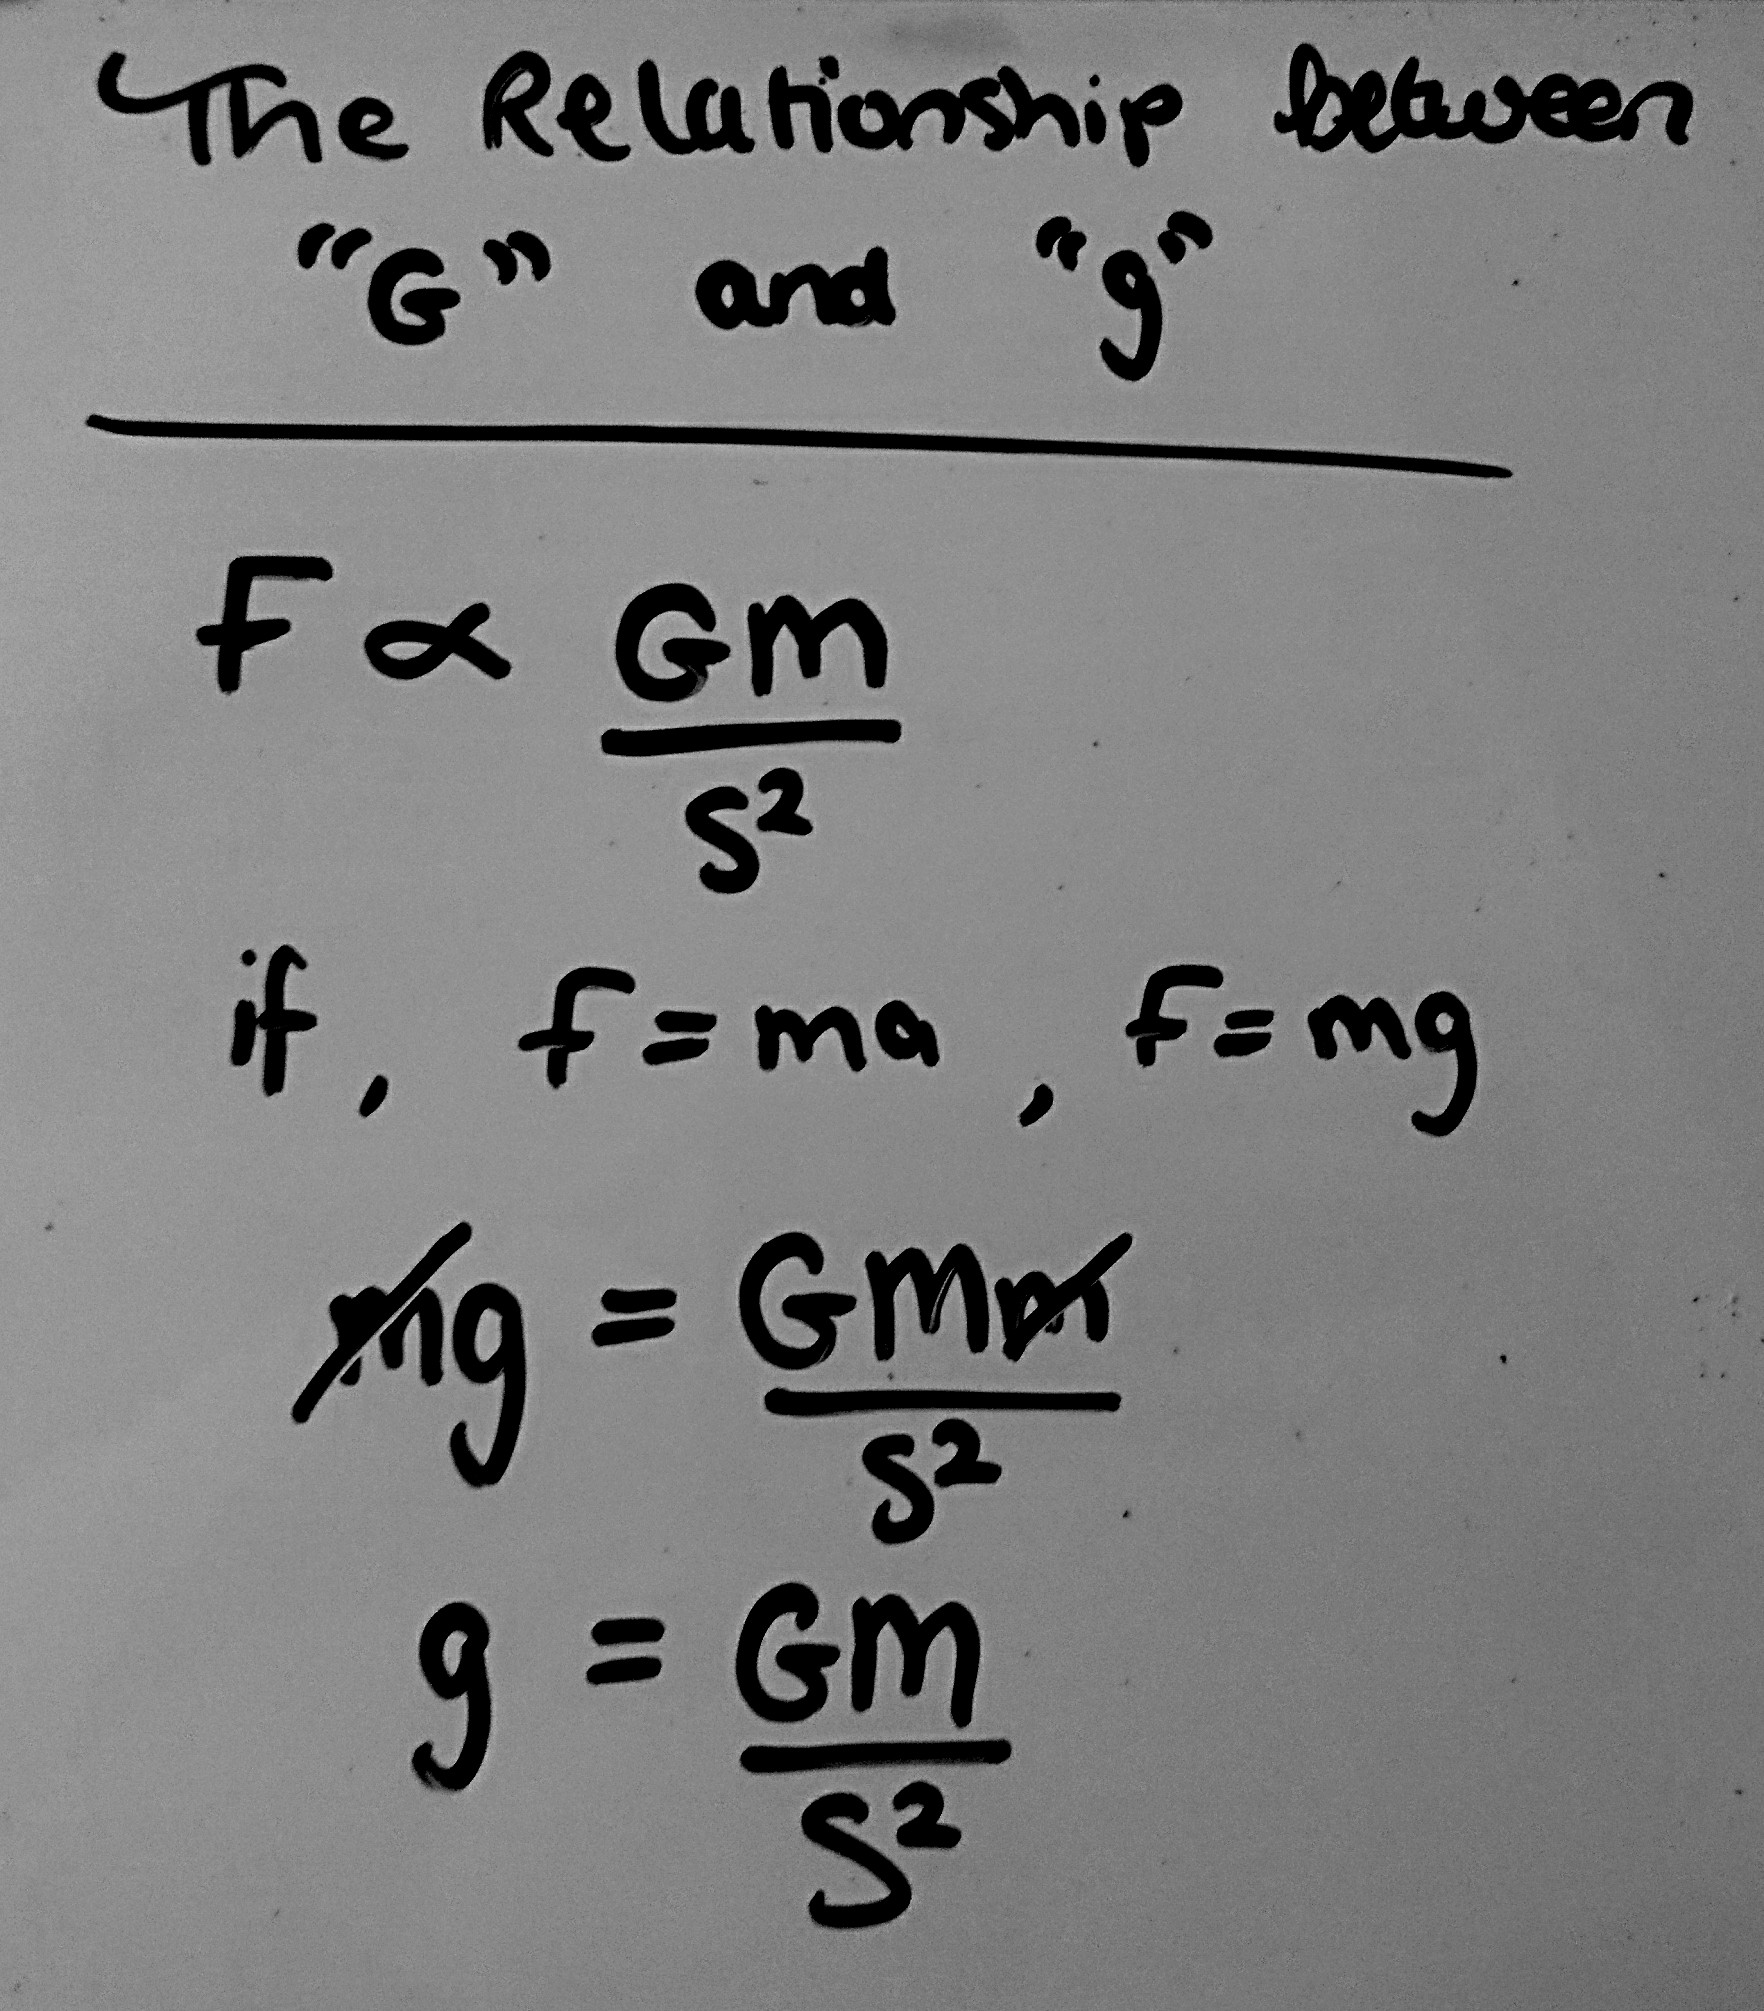 The Relationship between
"G" and "g"
F ∝ GM
S²
if, f=ma, f=mg
mg = GMm
S²
g = GM
S²